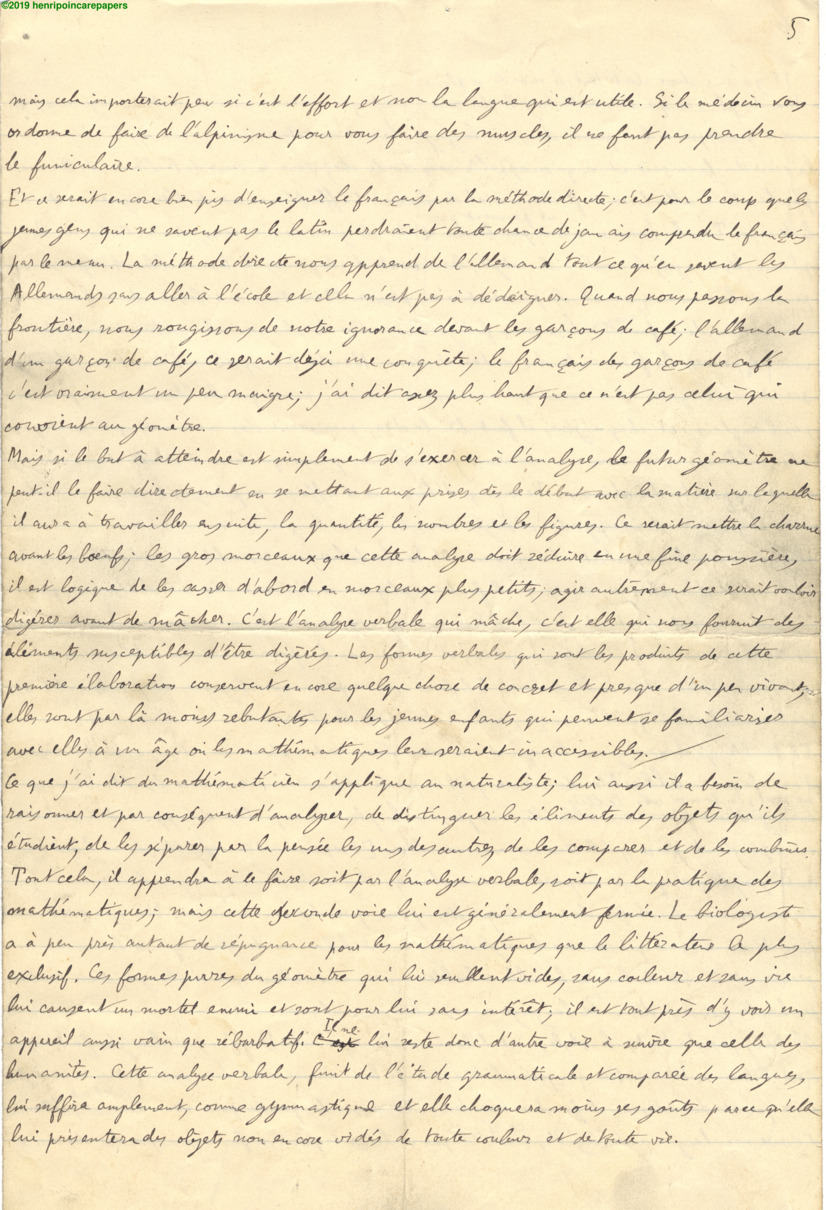 ©2019 henripoincarepapers
5
mais cela importerait peu si c'est l'effort et non la langue qui est utile. Si le médecin vous
ordonne de faire de l'alpinisme pour vous faire des muscles, il ne faut pas prendre
le funiculaire.
Et ce serait encore bien pis d'enseigner le français par la méthode directe; c'est pour le coup que les
jeunes gens qui ne savent pas le latin perdraient toute chance de jamais comprendre le français
par le menu. La méthode directe nous apprend de l'allemand tout ce qu'en savent les
Allemands sans aller à l'école et cela n'est pas à dédaigner. Quand nous passons la
frontière, nous rougissons de notre ignorance devant les garçons de café; l'allemand
d'un garçon de café, ce serait déjà une conquête; le français des garçons de café
c'est vraiment un peu maigre; j'ai dit assez plus haut que ce n'est pas celui qui
convient au géomètre.
Mais si le but à atteindre est simplement de s'exercer à l'analyse, le futur géomètre ne
peut-il le faire directement en se mettant aux prises dès le début avec la matière sur laquelle
il aura à travailler ensuite, la quantité, les nombres et les figures. Ce serait mettre la charrue
avant les boeufs; les gros morceaux que cette analyse doit réduire en une fine poussière,
il est logique de les casser d'abord en morceaux plus petits; agir autrement ce serait vouloir
digérer avant de mâcher. C'est l'analyse verbale qui mâche, c'est elle qui nous fournit des
éléments susceptibles d'être digérés. Les formes verbales qui sont les produits de cette
première élaboration conservent encore quelque chose de concret et presque d'un peu vivant;
elles sont par là moins rebutantes pour les jeunes enfants qui peuvent se familiariser
avec elles à un âge où les mathématiques leur seraient inaccessibles.
Ce que j'ai dit du mathématicien s'applique au naturaliste; lui aussi il a besoin de
raisonner et par conséquent d'analyser, de distinguer les éléments des objets qu'ils
étudient, de les séparer par la pensée les uns des autres, de les comparer et de les combiner.
Tout cela, il apprendra à le faire soit par l'analyse verbale, soit par la pratique des
mathématiques; mais cette seconde voie lui est généralement fermée. Le biologiste
a à peu près autant de répugnance pour les mathématiques que le littérateur le plus
exclusif. Ces formes pures du géomètre qui lui semblent vides, sans couleur et sans vie
lui causent un mortel ennui et sont pour lui sans intérêt; il est tout près d'y voir un
appareil aussi vain que rébarbatif. Il ne lui reste donc d'autre voie à suivre que celle des
humanités. Cette analyse verbale, fruit de l'étude grammaticale et comparée des langues,
lui suffira amplement, comme gymnastique et elle choquera moins ses goûts parce qu'elle
lui présentera des objets non encore vidés de toute couleur et de toute vie.